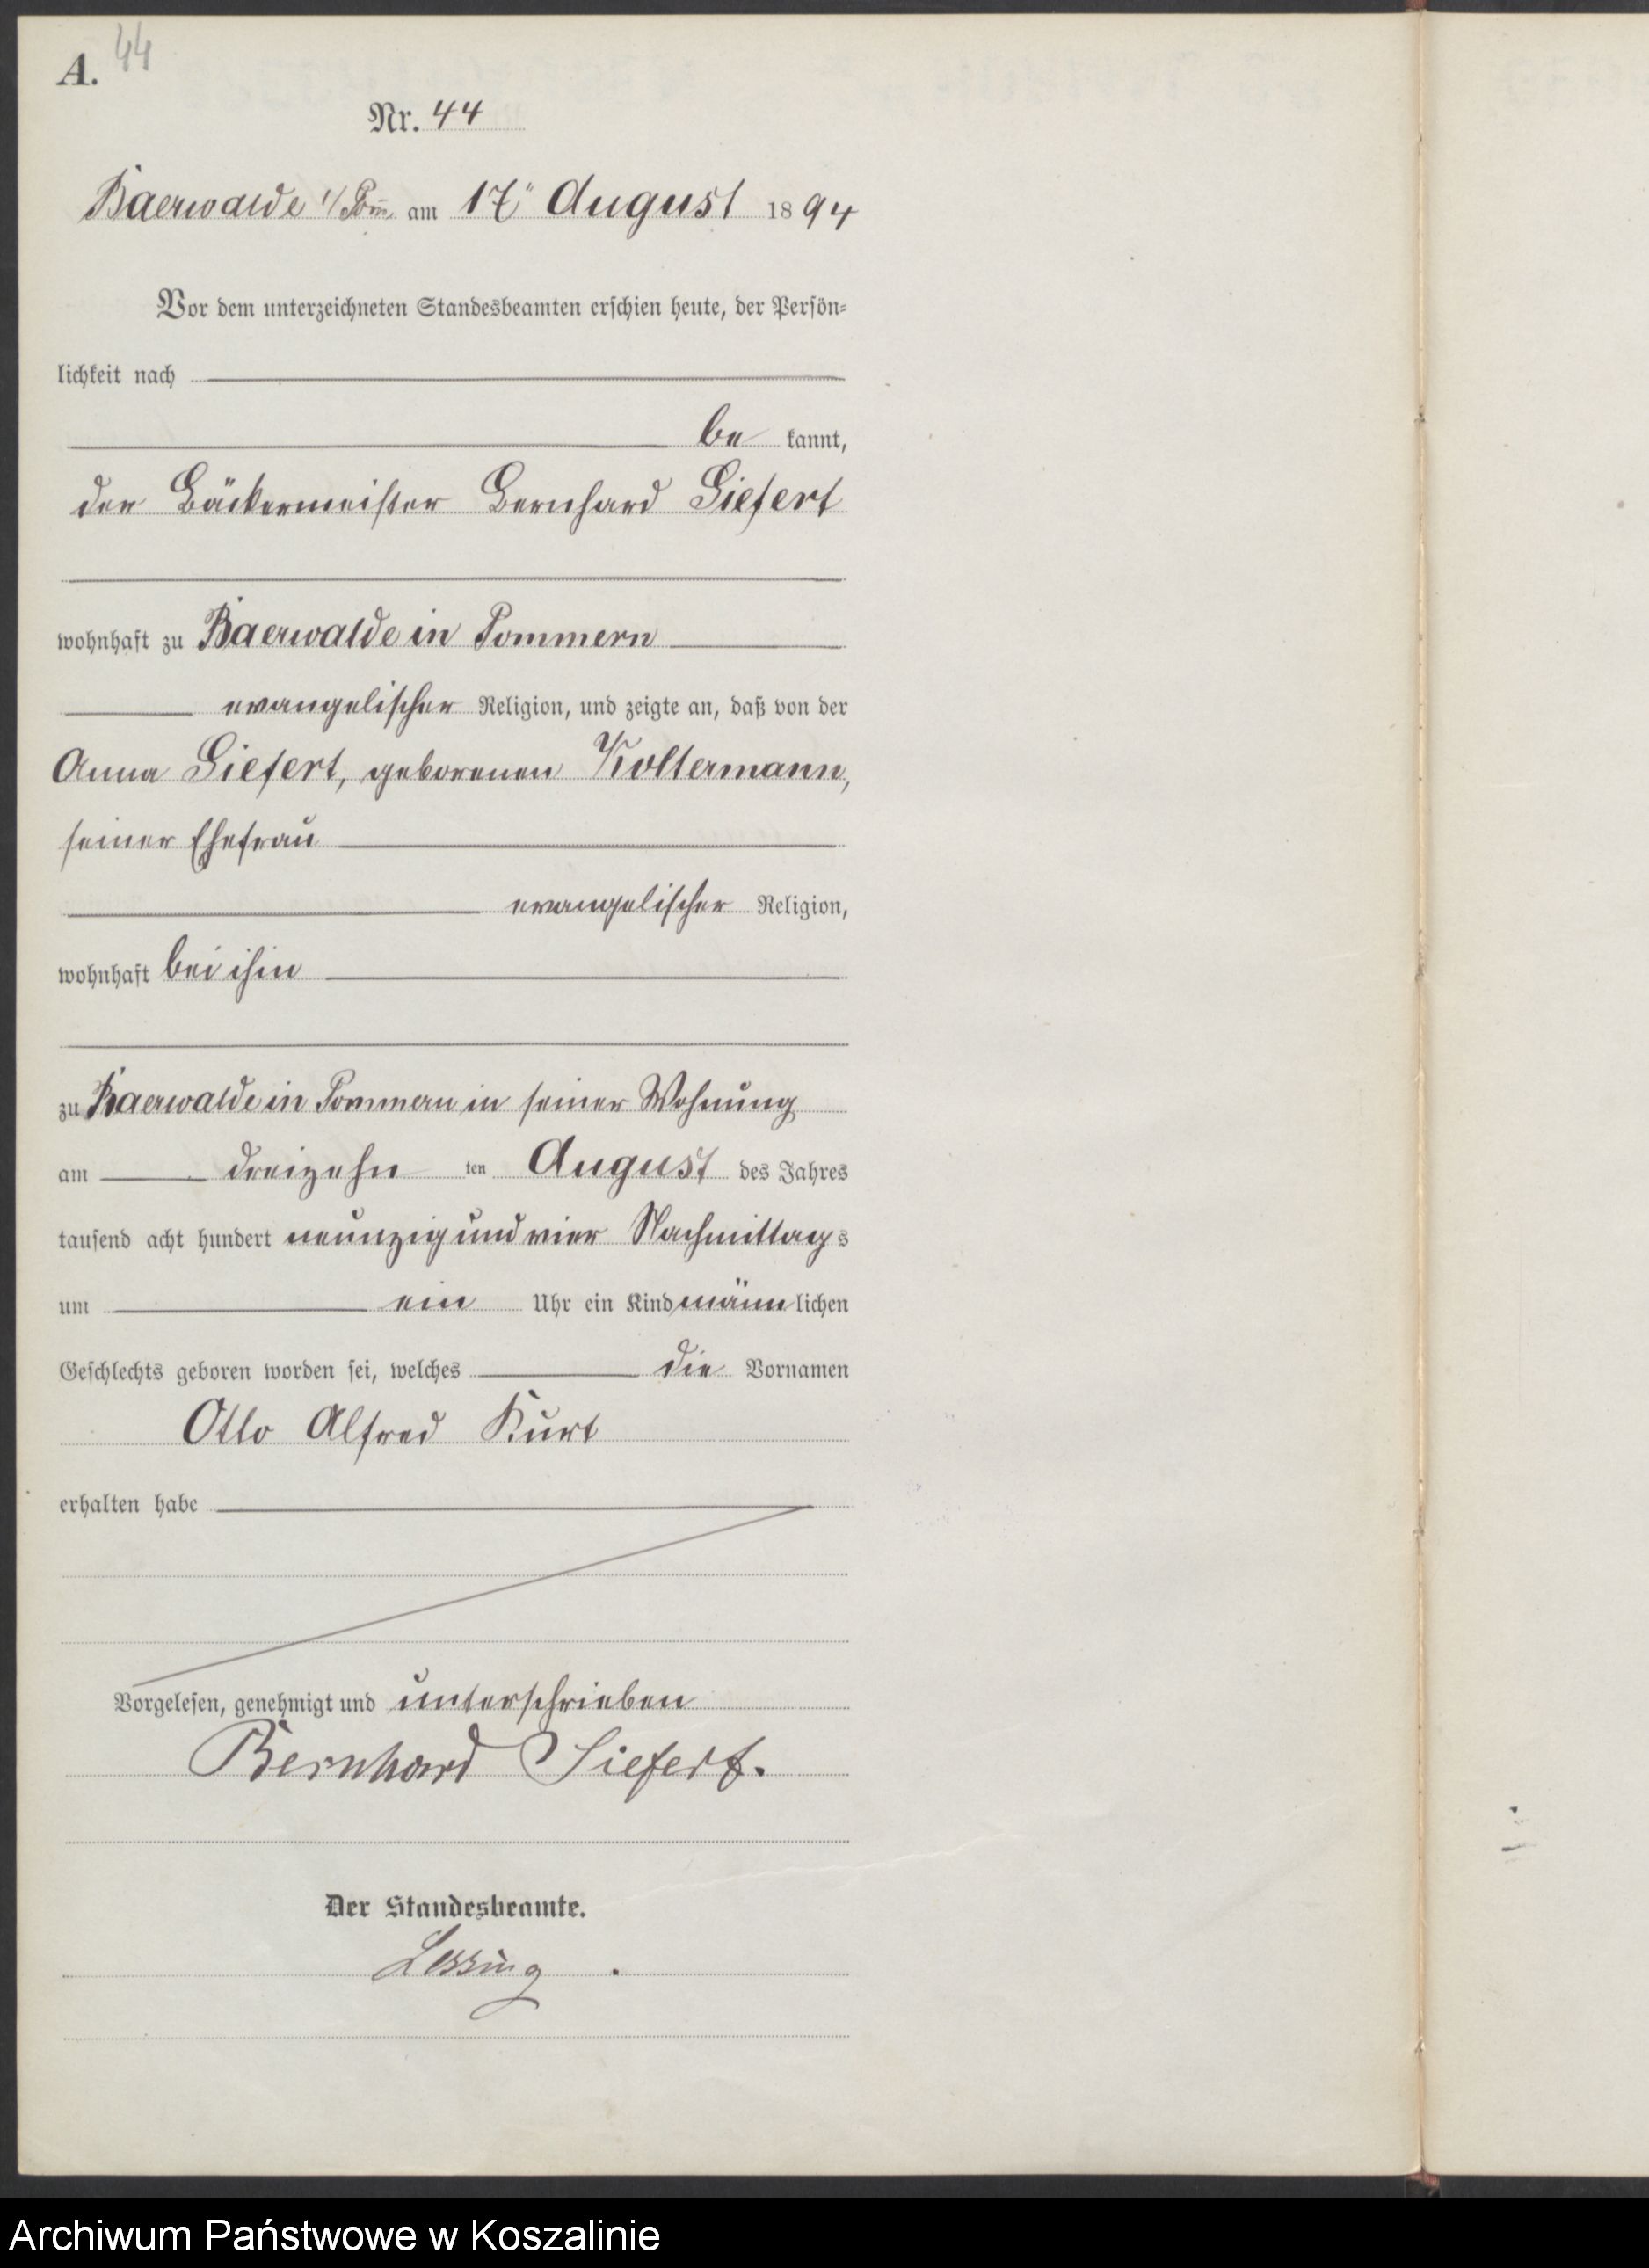 A.
44
Nr. 44
Baerwalde i/Pom. am 17ten August 1894
Vor dem unterzeichneten Standesbeamten erschien heute, der Persön-
lichkeit nach
be kannt,
der Bäckermeister Bernhard Siefert
wohnhaft zu Baerwalde in Pommern
evangelischer Religion, und zeigte an, daß von der
Anna Siefert, geborenen Koltermann,
seiner Ehefrau
evangelischer Religion,
wohnhaft bei ihm
zu Baerwalde in Pommern in seiner Wohnung
am dreizehn ten August des Jahres
tausend acht hundert neunzig und vier Nachmittags
um ein Uhr ein Kind männlichen
Geschlechts geboren worden sei, welches die Vornamen
Otto Alfred Kurt
erhalten habe
Vorgelesen, genehmigt und unterschrieben
Bernhard Siefert.
Der Standesbeamte.
Lessing.
Archiwum Państwowe w Koszalinie